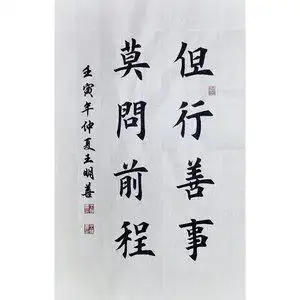 但行善事
莫問前程
壬寅年仲夏王明善